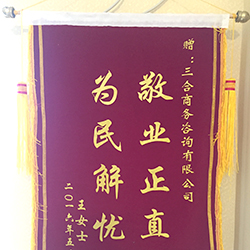 赠：三合商务咨询有限公司
敬业正直
为民解忧
王女士
二〇一六年五